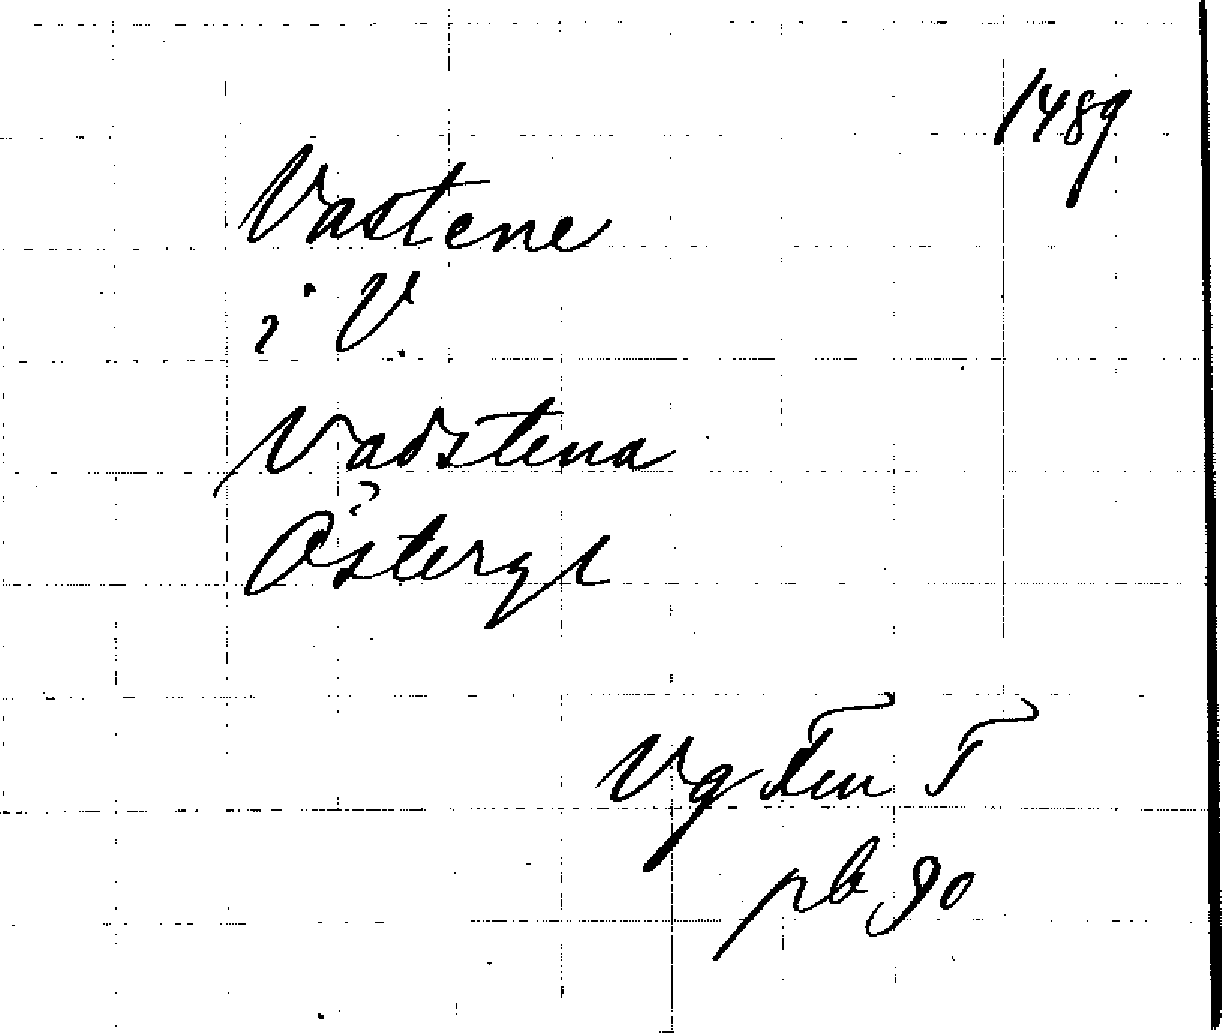 1489
Vastene
i V.
Vadstena
Östergl
Vg Fen F
pb 90